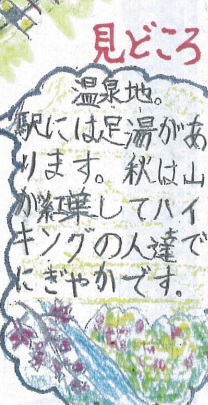 見どころ
温泉地。
駅には足湯があ
ります。秋は山
が紅葉してハイ
キングの人達で
にぎやかです。